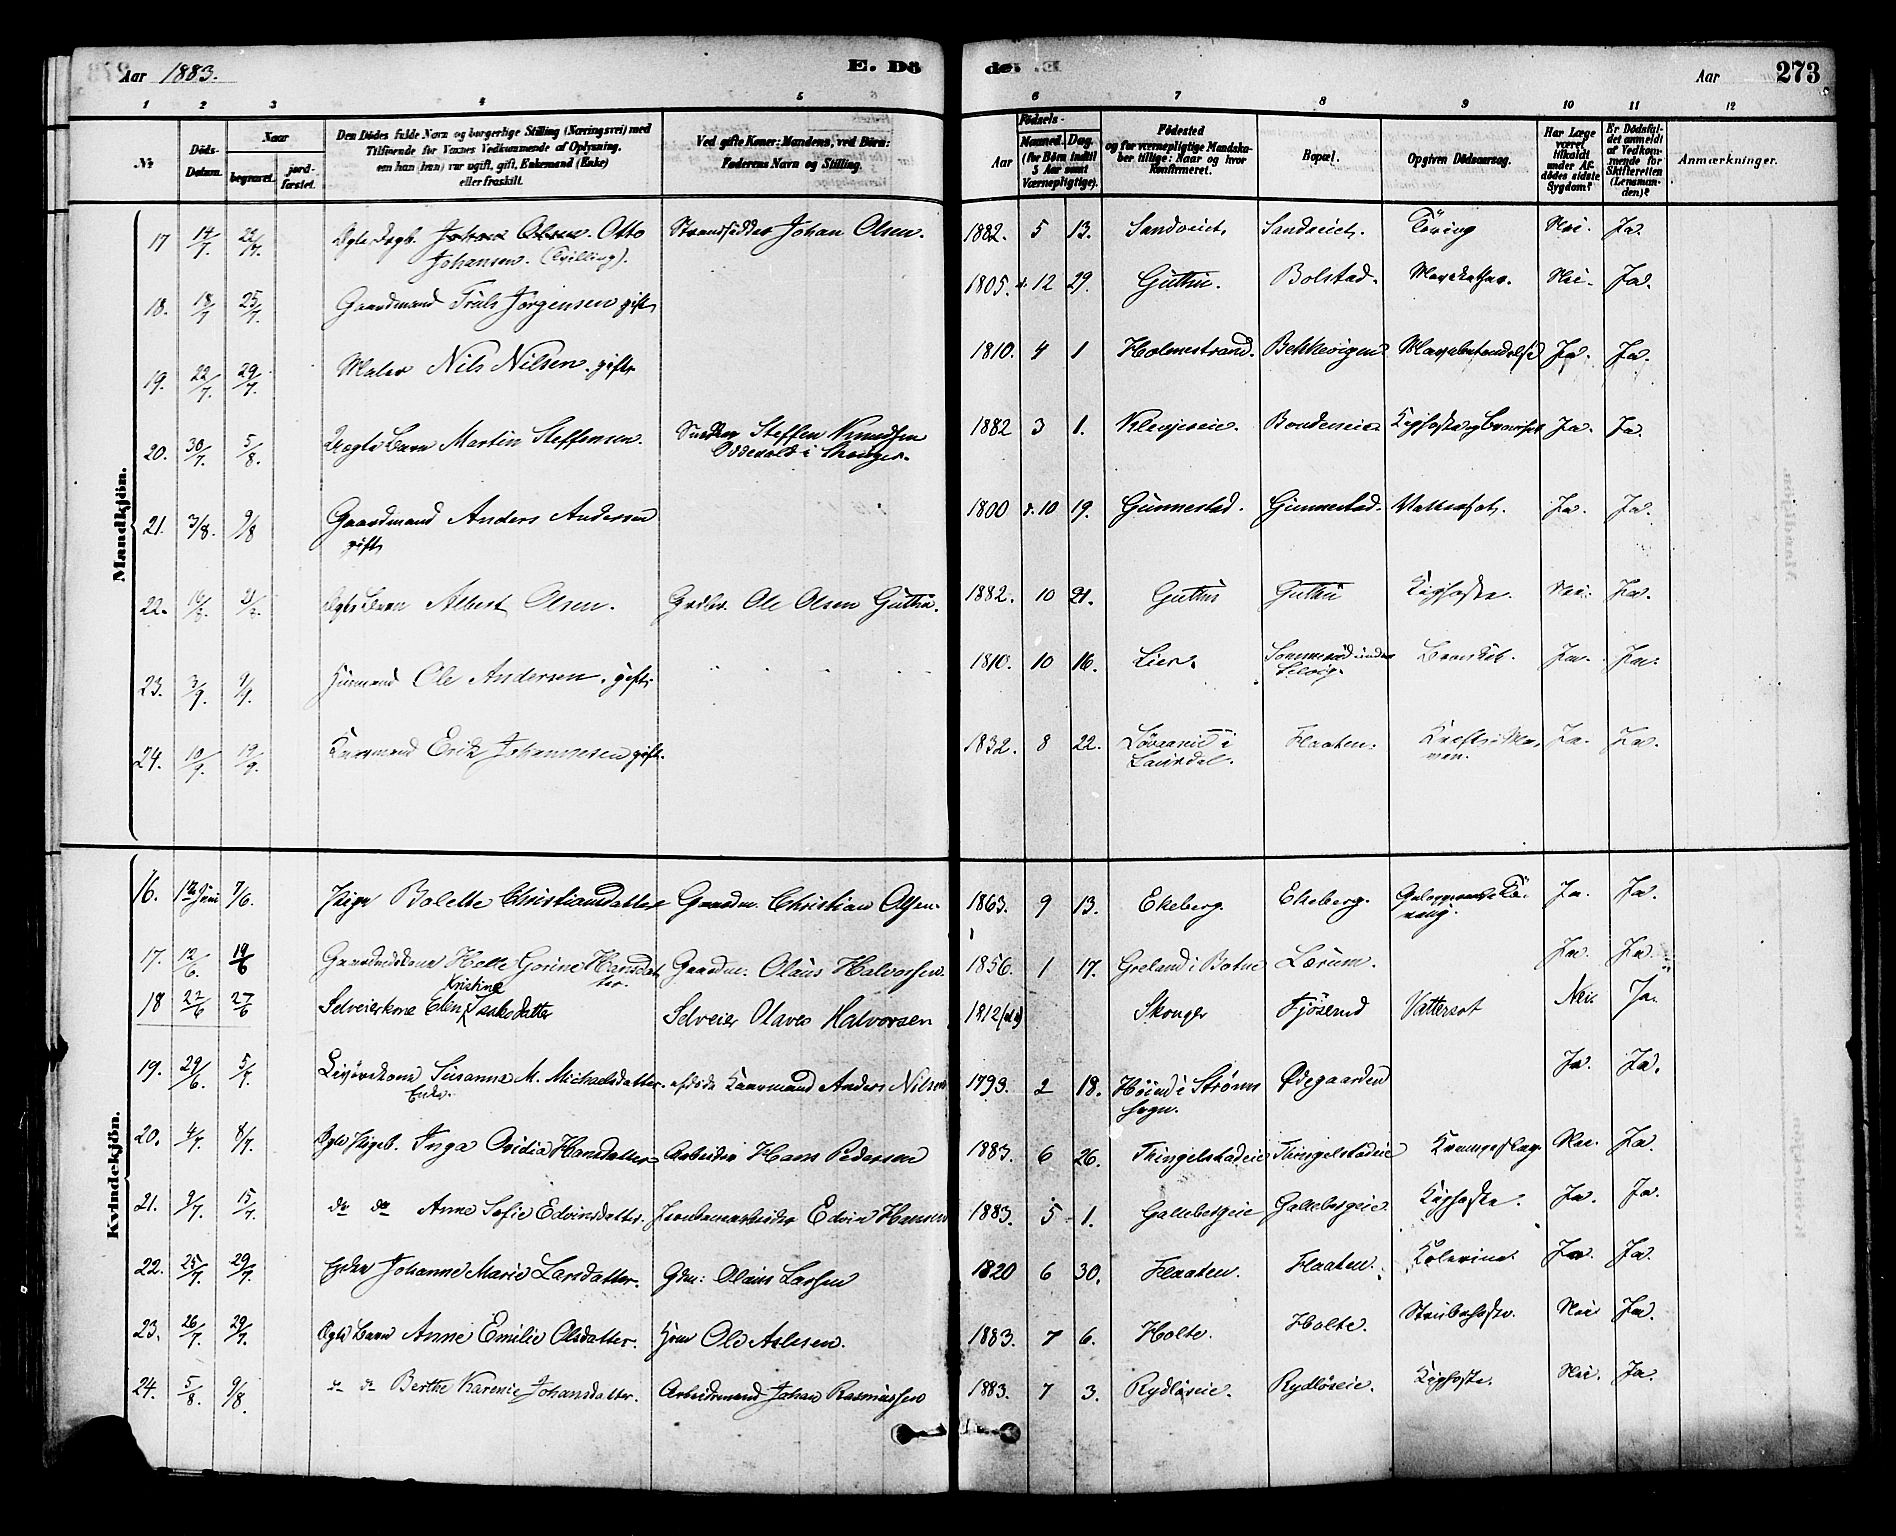 Aar 1883. E. Dö
de. Aar 273
1 2 3 4 5 6 7 8 9 10 11 12
No
Döds-Datum.
Naar
begravet.
jord-fæstet.
Den Dödes fulde Navn og borgerlige Stilling (Næringsvei) med
Tilföiende for Voxnes Vedkommende af Oplysning,
om han (hun) var ugift, gift, Enkemand (Enke)
eller fraskilt.
Ved gifte Koner: Mandens, ved Börn:
Faderens Navn og Stilling.
Födsels-
Aar
Maaned. Dag.
(for Börn indtil
5 Aar samt
Værnepligtige).
Födested
og for værnepligtige Mandska-
ber tillige: Naar og hvor
Konfirmeret.
Bopæl.
Opgiven Dödsaarsag.
Har Læge
været
tilkaldt
under Af-
dödes sidste
Sygdom?
Er Dödsfal-
det anmeldt
af Vedkom-
mende for
Skifteretten
(Lensman-
den)?
Anmærkninger.
Mandkjön.
17 14/7. 22/7. Otto Strandsidder Johan Olsen. 1882. 5 13. Sandveiet. Sandveiet. Tæring Nei. Ja.
Johansen. (Tvilling).
18. 18/7 25/7. Gaardmand Truls Jørgensen gift 1805. 12 29. Guthu. Bolstad. Nei. Ja.
19. 22/7. 29/7. Maler Nils Nilsen. gift 1810. 4 1 Holmestrand. Bekkevigen Ja. Ja.
20. 30/7. 5/8. Barn Martin Steffensen. Steffen Knudsen 1882 3 1. Ja. Ja.
i Skouger.
21. 3/8. 9/8 Gaardmand Anders Andersen 1800 10 19. Gunnestad. Gunnestad. Vattersot. Ja. Ja.
gift
22. 21/8. Ægte Barn Albert Olsen. Ole Olsen Guthu. 1882. 10 21. Guthu Guthu Kighoste. Nei. Ja.
23. 3/9. 9/9. Husmand Ole Andersen. gift 1810. 10 16. Lier. Ja. Ja.
24. 10/9. 19/9. Kaarmand Erik Johannesen gift. 1832. 8 22. i Flaaten. Kræft i Ma- Ja. Ja.
Laurdal. ven.
Kvindekjön.
16. Juni 7/6. Pige Bolette Christiansdatter Gaardm. Christian Olsen. 1863. 9 13. Ekeberg. Ekeberg. Ja. Ja.
17. 12/6. 19/6 Helle Gorine Hansdat Gaardm. Olaus Halvorsen 1856. 1 17. Greland i Botne Lærum. Ja. Ja.
ter.
Kristine
18 22/6 27/6 Selveierkone Elen Isaksdatter Selveier Olaves Halvorsen 1812 Skouger Fjøserud Vattersot Nei Ja.
19. 29/6. 5/7. Susanna M. Michaelsdatter. Kaarmand Anders Nilsen 1793. 2 18. i Strøms Ødegaarden Ja. Ja.
Enke. sogn.
20. 4/7. 8/7. Ægte Pigeb. Inga Ovidia Hansdatter Arbeider Hans Pedersen 1883. 6 26. Thingelstadeie Thingelstadeie Nei. Ja.
21. 9/7. 15/7. do do Anne Sofie Edvinsdatter. Jernbanearbeider Edvin Hansen 1883. 5 1. Gallebergeie Gallebergeie. Kighoste. Ja. Ja.
22. 25/7. 29/7. Johanne Marie Larsdatter. Gdm: Olaus Larsen 1820 6 30. Flaaten. Flaaten. Kolerine. Ja. Ja.
23. 26/7. 29/7. Ægte Barn Anne Emilie Olsdatter. Ole Aslesen. 1883. 7 6. Holte. Holte. Strubehoste. Nei Ja.
24. 5/8. 9/8. do do Berthe Karenie Johansdatter. Arbeidsmand Johan Rasmussen 1883. 7 3. Rydløseie. Rydløseie. Kighoste. Nei. Ja.